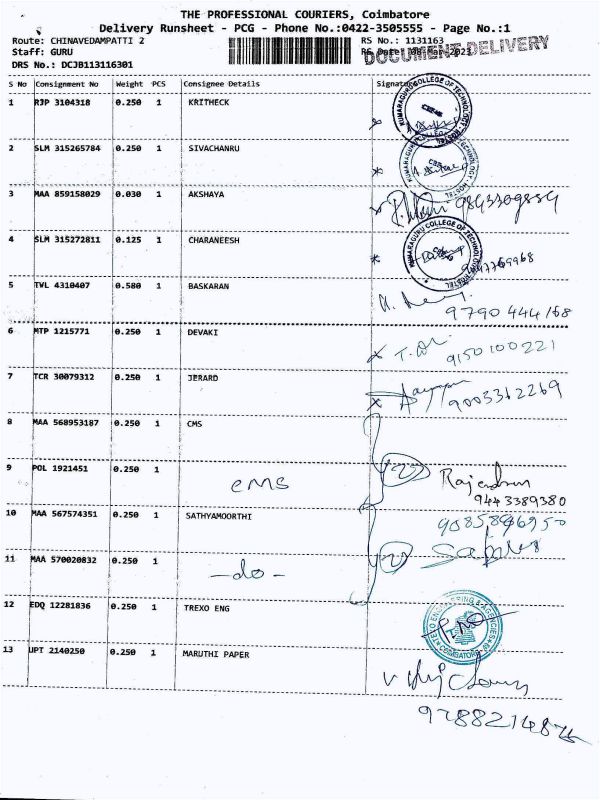 THE PROFESSIONAL COURIERS, Coimbatore
Delivery Runsheet - PCG - Phone No.:0422-3505555 - Page No.:1
Route: CHINAVEDAMPATTI 2
RS No.: 1131163
Staff: GURU
DOCUMENT DELIVERY
DRS No.: DCJB113116301
S No Consignment No Weight PCS Consignee Details Signature
1 RJP 3104318 0.250 1 KRITHECK
KUMARAGURU COLLEGE OF TECHNOLOGY HOSTEL
2 SLM 315265784 0.250 1 SIVACHANRU
3 MAA 859158029 0.030 1 AKSHAYA
4 SLM 315272811 0.125 1 CHARANEESH
KUMARAGURU COLLEGE OF TECHNOLOGY HOSTEL
5 TVL 4310407 0.580 1 BASKARAN
9790 444168
6 MTP 1215771 0.250 1 DEVAKI
9150100221
7 TCR 30079312 0.250 1 JERARD
9003362269
8 MAA 568953187 0.250 1 CMS
9 POL 1921451 0.250 1 CMS
Rajendran
9443389380
10 MAA 567574351 0.250 1 SATHYAMOORTHI
11 MAA 570020832 0.250 1 -do-
12 EDQ 12281836 0.250 1 TREXO ENG
13 UPT 2140250 0.250 1 MARUTHI PAPER